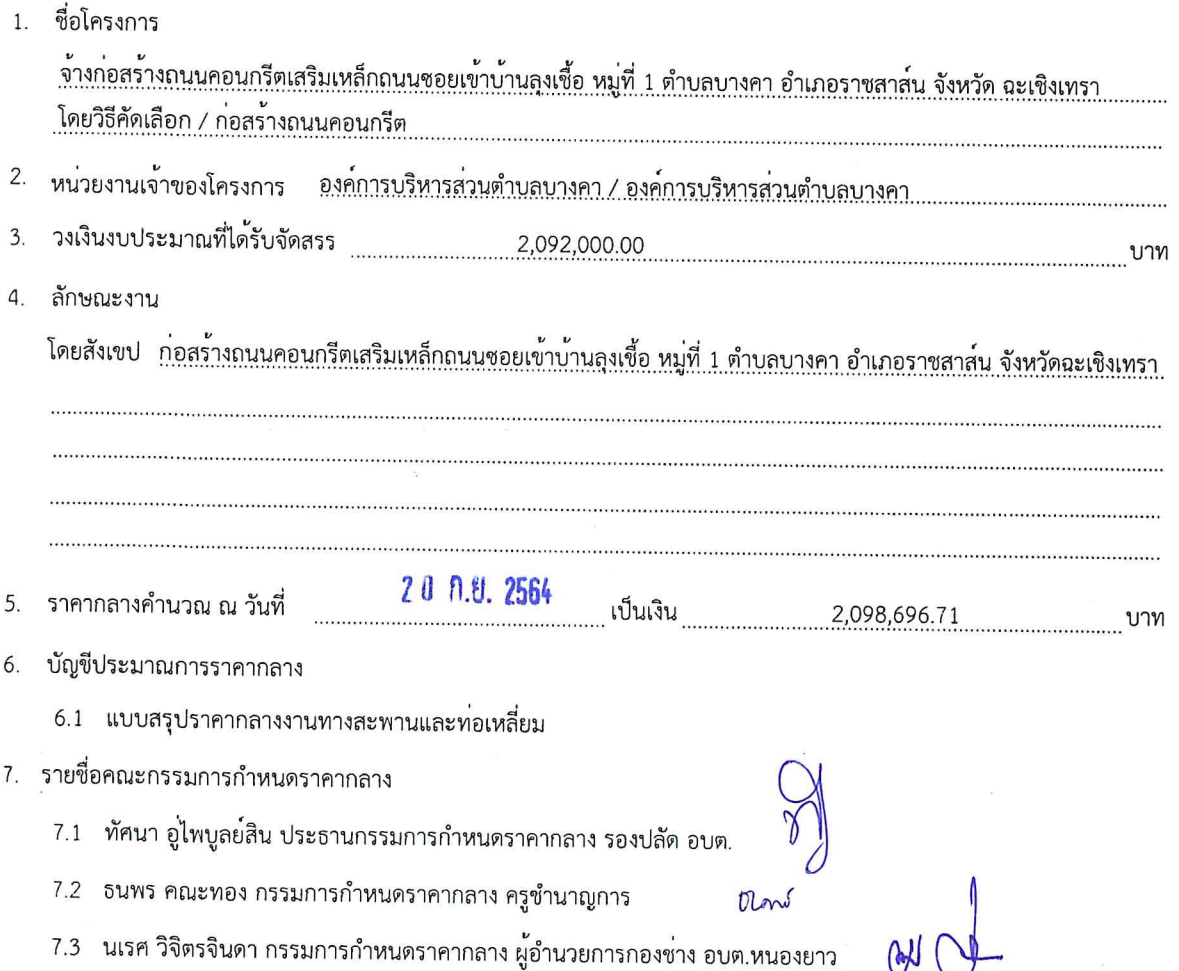 1. ชื่อโครงการ
จ้างก่อสร้างถนนคอนกรีตเสริมเหล็กถนนซอยเข้าบ้านลุงเชื้อ หมู่ที่ 1 ตำบลบางคา อำเภอราชสาส์น จังหวัด ฉะเชิงเทรา
โดยวิธีคัดเลือก / ก่อสร้างถนนคอนกรีต
2. หน่วยงานเจ้าของโครงการ องค์การบริหารส่วนตำบลบางคา / องค์การบริหารส่วนตำบลบางคา
3. วงเงินงบประมาณที่ได้รับจัดสรร 2,092,000.00 บาท
4. ลักษณะงาน
โดยสังเขป ก่อสร้างถนนคอนกรีตเสริมเหล็กถนนซอยเข้าบ้านลุงเชื้อ หมู่ที่ 1 ตำบลบางคา อำเภอราชสาส์น จังหวัดฉะเชิงเทรา
5. ราคากลางคำนวณ ณ วันที่ 20 ก.ย. 2564 เป็นเงิน 2,098,696.71 บาท
6. บัญชีประมาณการราคากลาง
6.1 แบบสรุปราคากลางงานทางสะพานและท่อเหลี่ยม
7. รายชื่อคณะกรรมการกำหนดราคากลาง
7.1 ทัศนา อู่ไพบูลย์สิน ประธานกรรมการกำหนดราคากลาง รองปลัด อบต.
7.2 ธนพร คณะทอง กรรมการกำหนดราคากลาง ครูชำนาญการ
7.3 นเรศ วิจิตรจินดา กรรมการกำหนดราคากลาง ผู้อำนวยการกองช่าง อบต.หนองยาว